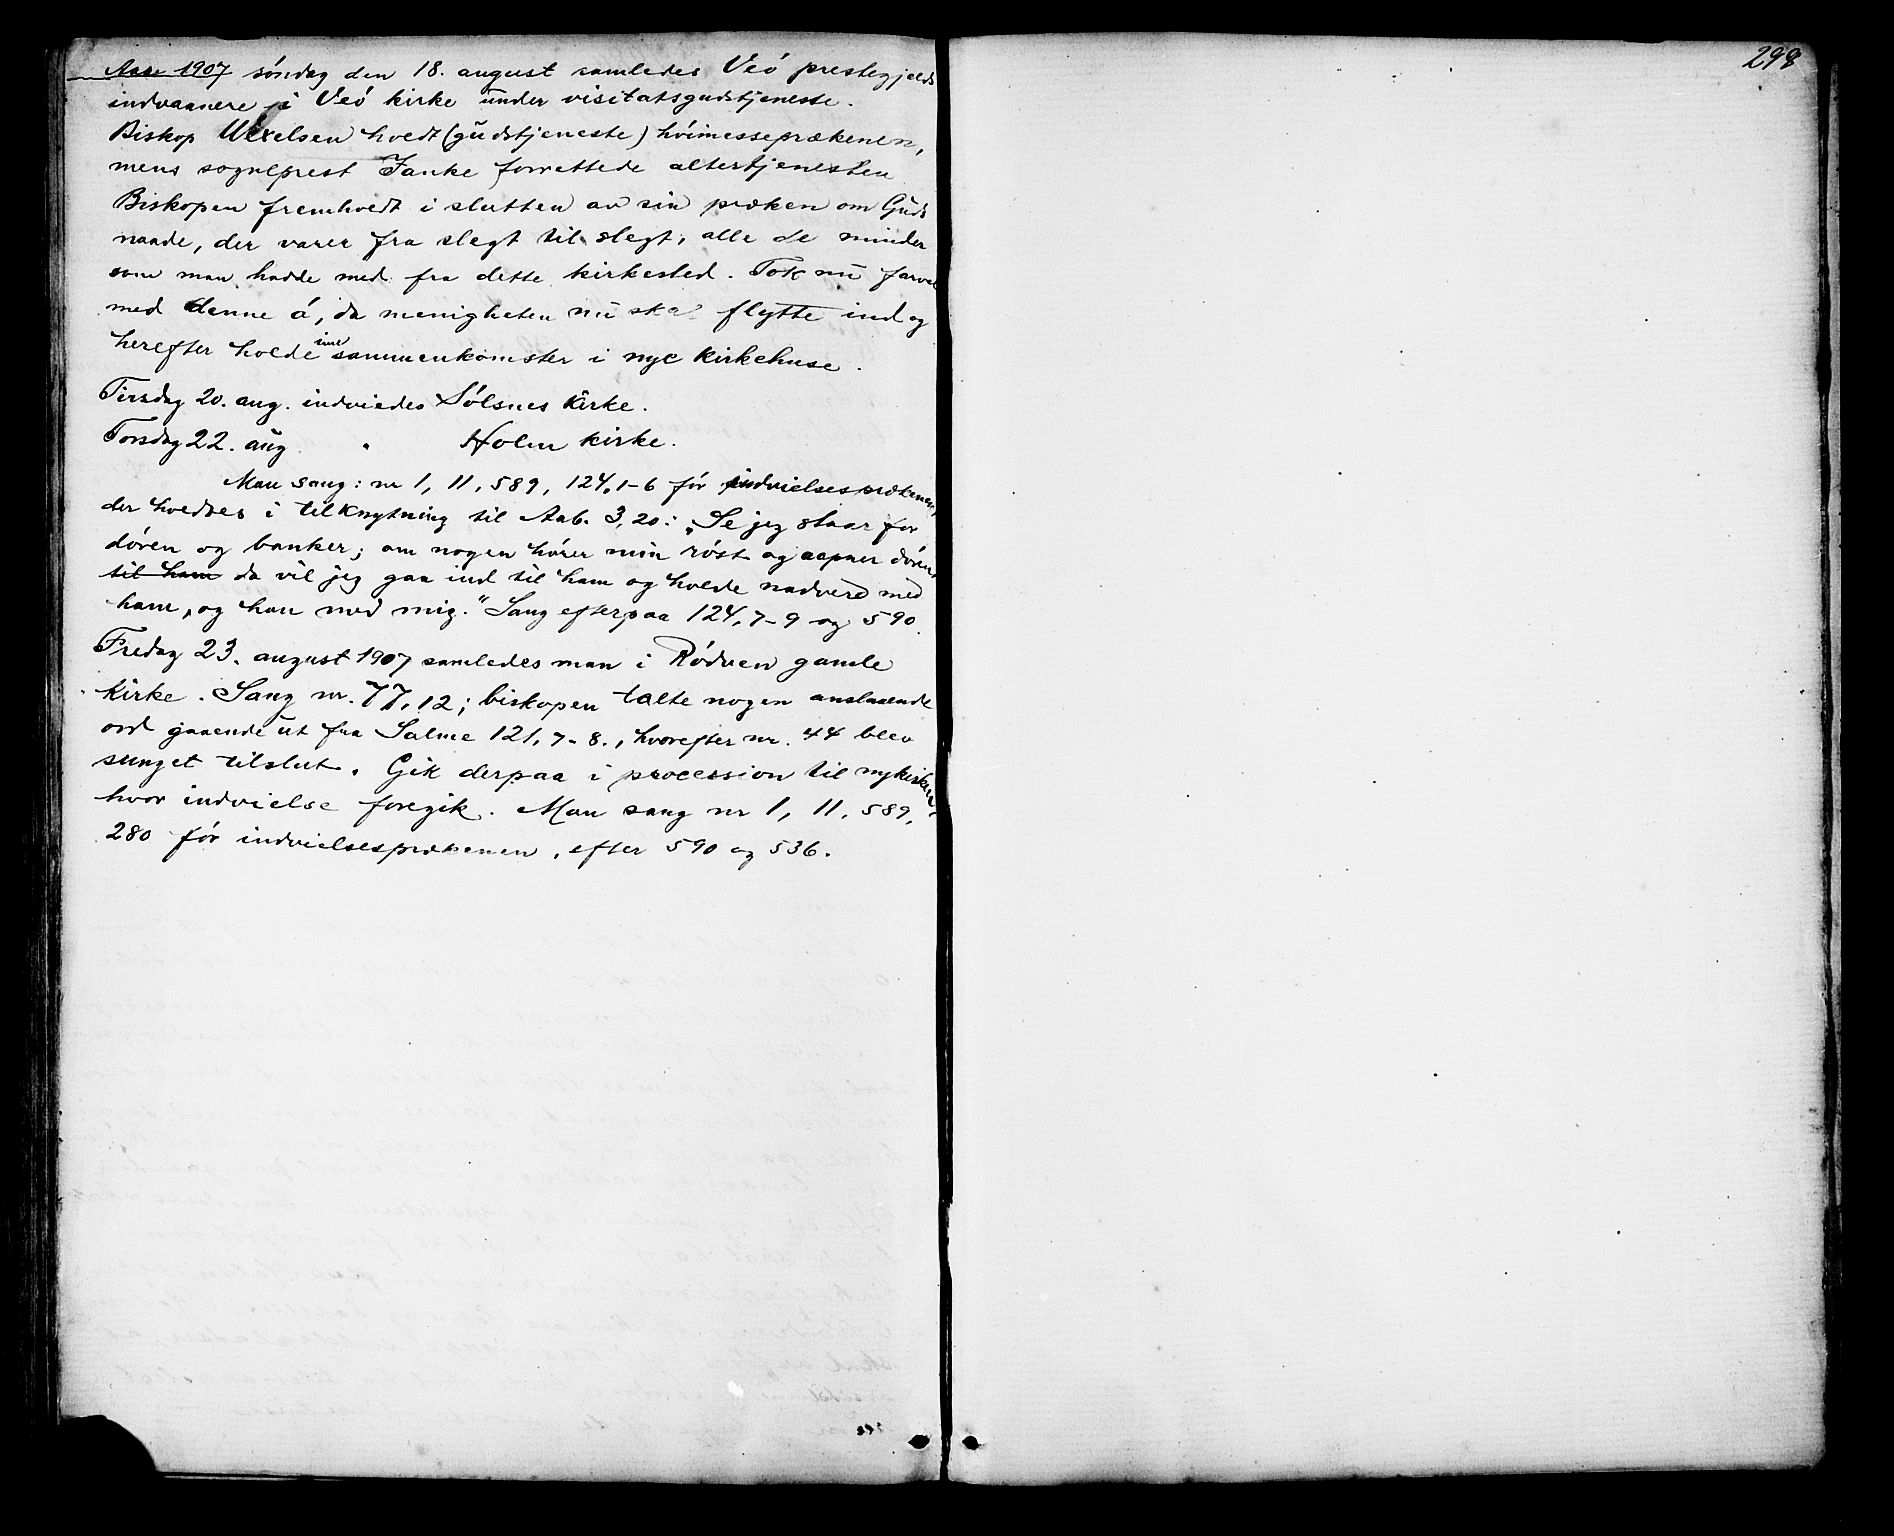 Aar 1907 söndag den 18. august samledes Veö prestegjelds
indvaanere i Veö kirke under visitatsgudstjeneste.
Biskop Wexelsen hvedt (gudstjeneste) höimesseprækenen,
mens sogneprest Janke forrettede altertjenesten
Biskopen fremhvedt i slutten av sin præken om Guds
naade, der varer fra slegt til slegt, alle de minder
som man hadde med fra dette kirkested. Tok nu farvel
med denne ö, da menigheten nu skal flytte ind og
herefter holde sine sammenkomster i nye kirkehuse.
Tirsdag 20. aug. indviedes Sölsnes kirke.
Torsdag 22. aug. " Holm kirke.
Man sang: nr 1, 11, 589, 124,1-6 för indvielsesprækenen,
der hvedtes i tilknytning til Aab. 3,20: "Se jeg staar for
dören og banker; om nogen hörer min röst og aapner dören
til ham da vil jeg gaa ind til ham og holde nadverd med
ham, og han med mig." Sang efterpaa 124,7-9 og 590.
Fredag 23. august 1907 samledes man i Rödven gamle
kirke. Sang nr. 77,12; biskopen talte nogen anslaaende
ord gaaende ut fra Salme 121,7-8., hvorefter nr. 44 blev
sunget tilslut. Gik derpaa i procession til nykirken,
hvor indvielse foregik. Man sang nr 1, 11, 589,
280 för indvielsesprækenen, efter 590 og 536.
298